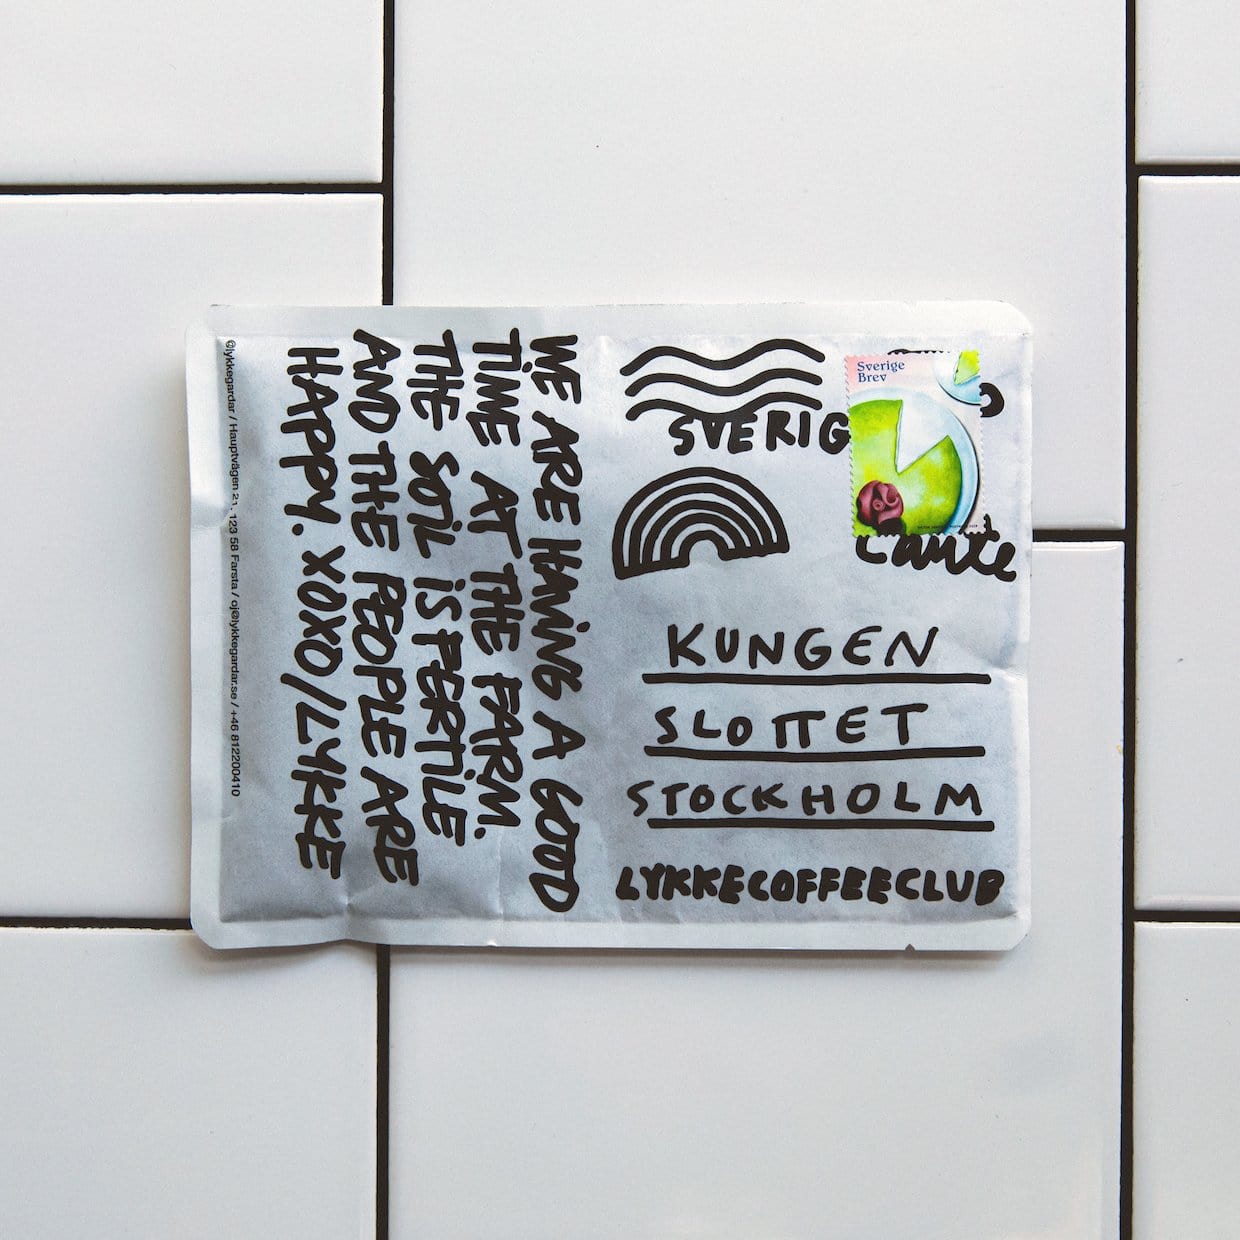 WE ARE HAViNG A GOOD
TiME AT THE FARM.
THE SOiL iS FERTiLE
AND THE PEOPLE ARE
HAPPY. XOXO/LYKKE
@lykkegardar / Hauptvägen 21, 123 58 Farsta / oj@lykkegardar.se / +46 812200410
SVERIG
Sverige
Brev
KUNGEN
SLOTTET
STOCKHOLM
LYKKECOFFEECLUB